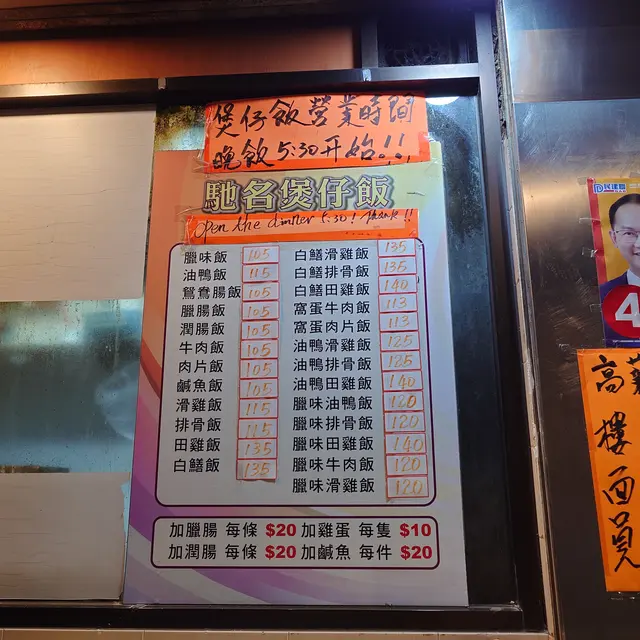 煲仔飯營業時間
晚飯 5:30 开始!!
馳名煲仔飯
Open the dinner 5:30! thank!!
臘味飯 105
油鴨飯 115
鴛鴦腸飯 105
臘腸飯 105
潤腸飯 105
牛肉飯 105
肉片飯 105
鹹魚飯 105
滑雞飯 115
排骨飯 115
田雞飯 135
白鱔飯 135
白鱔滑雞飯 135
白鱔排骨飯 135
白鱔田雞飯 140
窩蛋牛肉飯 113
窩蛋肉片飯 113
油鴨滑雞飯 125
油鴨排骨飯 125
油鴨田雞飯 140
臘味油鴨飯 120
臘味排骨飯 120
臘味田雞飯 140
臘味牛肉飯 120
臘味滑雞飯 120
加臘腸 每條 $20 加雞蛋 每隻 $10
加潤腸 每條 $20 加鹹魚 每件 $20
民建聯
4
高
樓面員